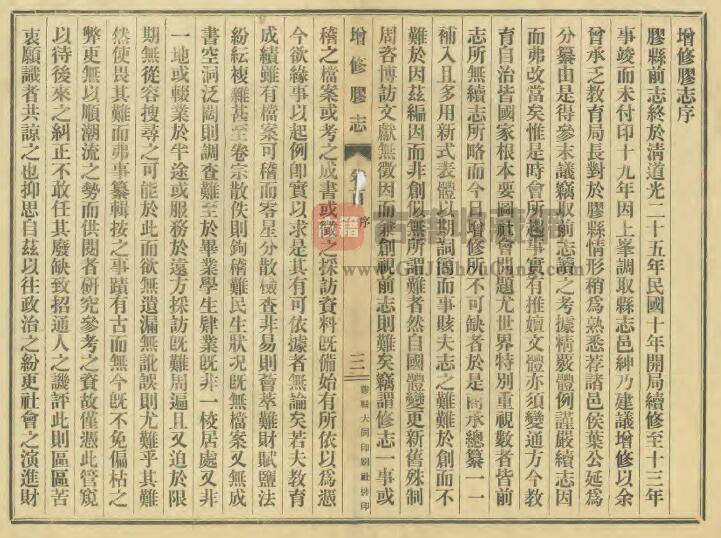 增修膠志序
膠縣前志終於清道光二十五年民國十年開局續修至十三年
事竣而未付印十九年因上峯調取縣志邑紳乃建議增修以余
曾承乏教育局長對於膠縣情形稍爲熟悉荐諸邑侯葉公延爲
分纂由是得參末議竊取前志讀之考據精覈體例謹嚴續志因
而弗改當矣惟是時會所趨事實有推嬗文體亦須變通方今教
育自治皆國家根本要圖社會問題尤世界特別重視數者皆前
志所無續志所略而今日增修所不可缺者於是商承總纂一一
補入且多用新式表體以期詞簡而事賅夫志之難難於創而不
難於因茲編因而非創似無所謂難者然自國體變更新舊殊制
周咨博訪文獻無徵因而兼創視前志則難矣竊謂修志一事或
增修膠志
序
三
膠縣大同印刷社排印
稽之檔案或考之成書或徵之採訪資料既備始有所依以爲憑
今欲緣事以起例卽實以求是其有可依據者無論矣若夫教育
成績雖有檔案可稽而零星分散檢查非易則薈萃難財賦鹽法
紛紜複雜甚至卷宗散佚則鉤稽難民生狀況既無檔案又無成
書空洞泛闊則調查難至於畢業學生肄業既非一校居處又非
一地或輟業於半途或服務於遠方採訪既難周遍且又迫於限
期無從容搜尋之可能於此而欲無遺漏無訛誤則尤難乎其難
然使畏其難而弗事纂輯按之事蹟有古而無今既不免偏枯之
弊更無以順潮流之勢而供閱者研究參考之資故僅憑此管窺
以待後來之糾正不敢任其廢缺致招通人之譏評此則區區苦
衷願識者共諒之也抑思自茲以往政治之紛更社會之演進財